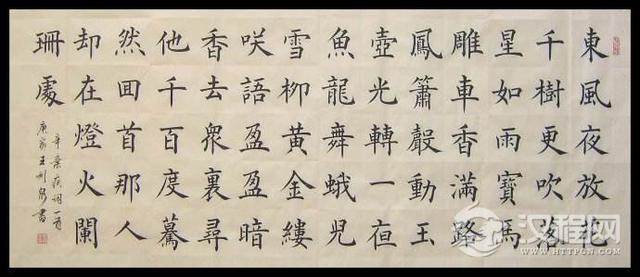 東風夜放花
千樹更吹落
星如雨寶馬
雕車香滿路
鳳簫聲動玉
壺光轉一夜
魚龍舞蛾兒
雪柳黃金縷
咲語盈盈暗
香去眾裏尋
他千百度驀
然囬首那人
却在燈火闌
珊處
辛棄疾詞一首
庚寅王
書
汉程网
HTTPCN.COM